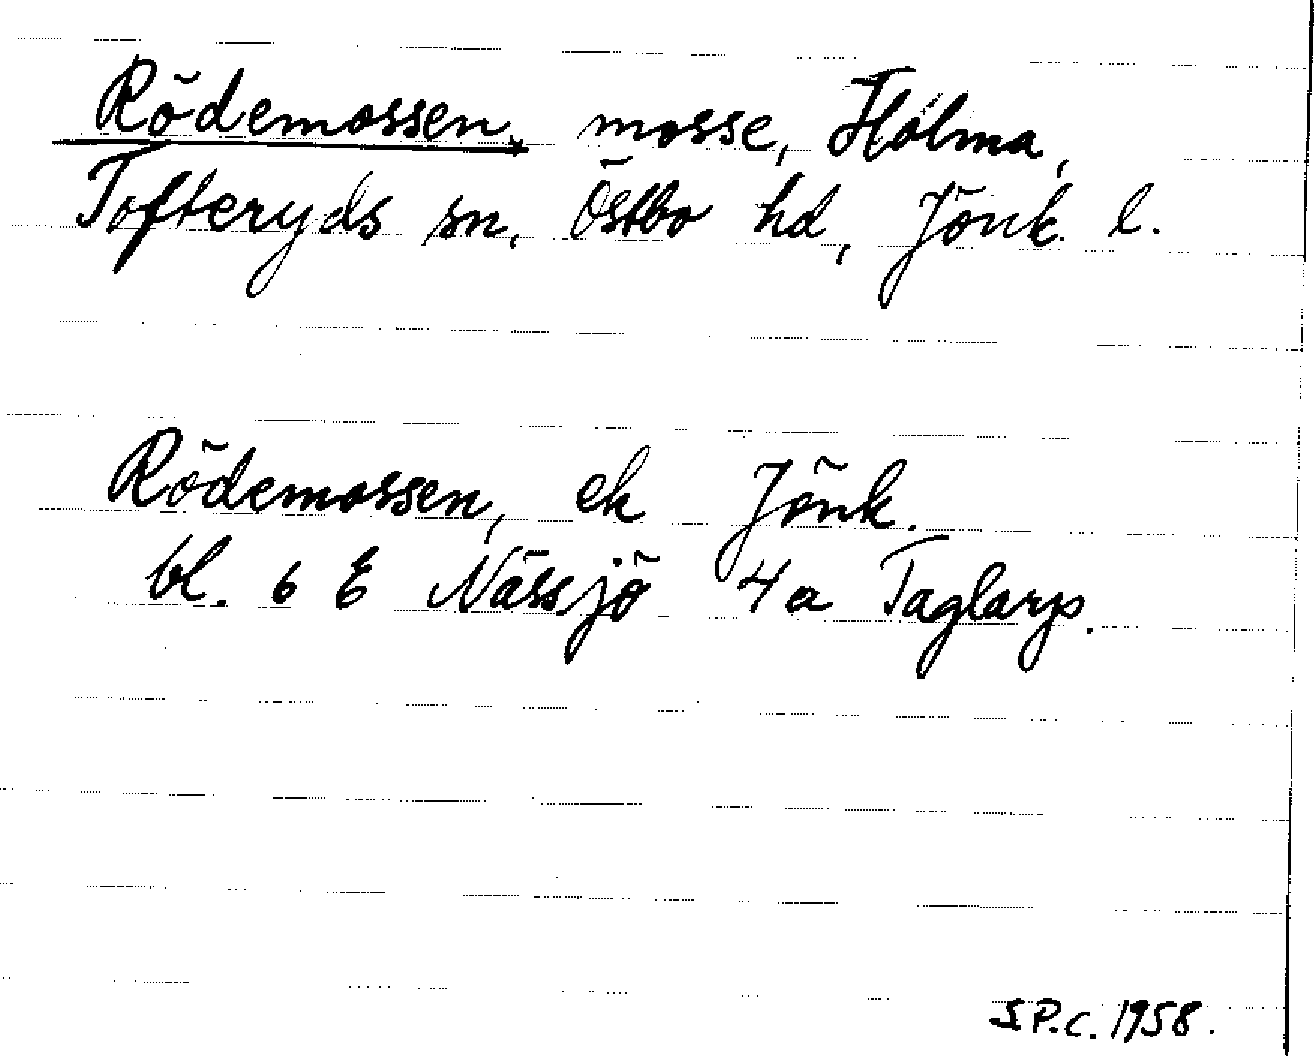 Rödemossen, mosse, Holma,
Tofteryds sn, Östbo hd, Jönk. l.
Rödemossen, ek Jönk.
bl. 6 E Nässjö 4a Taglarp.
S.P.C. 1958.